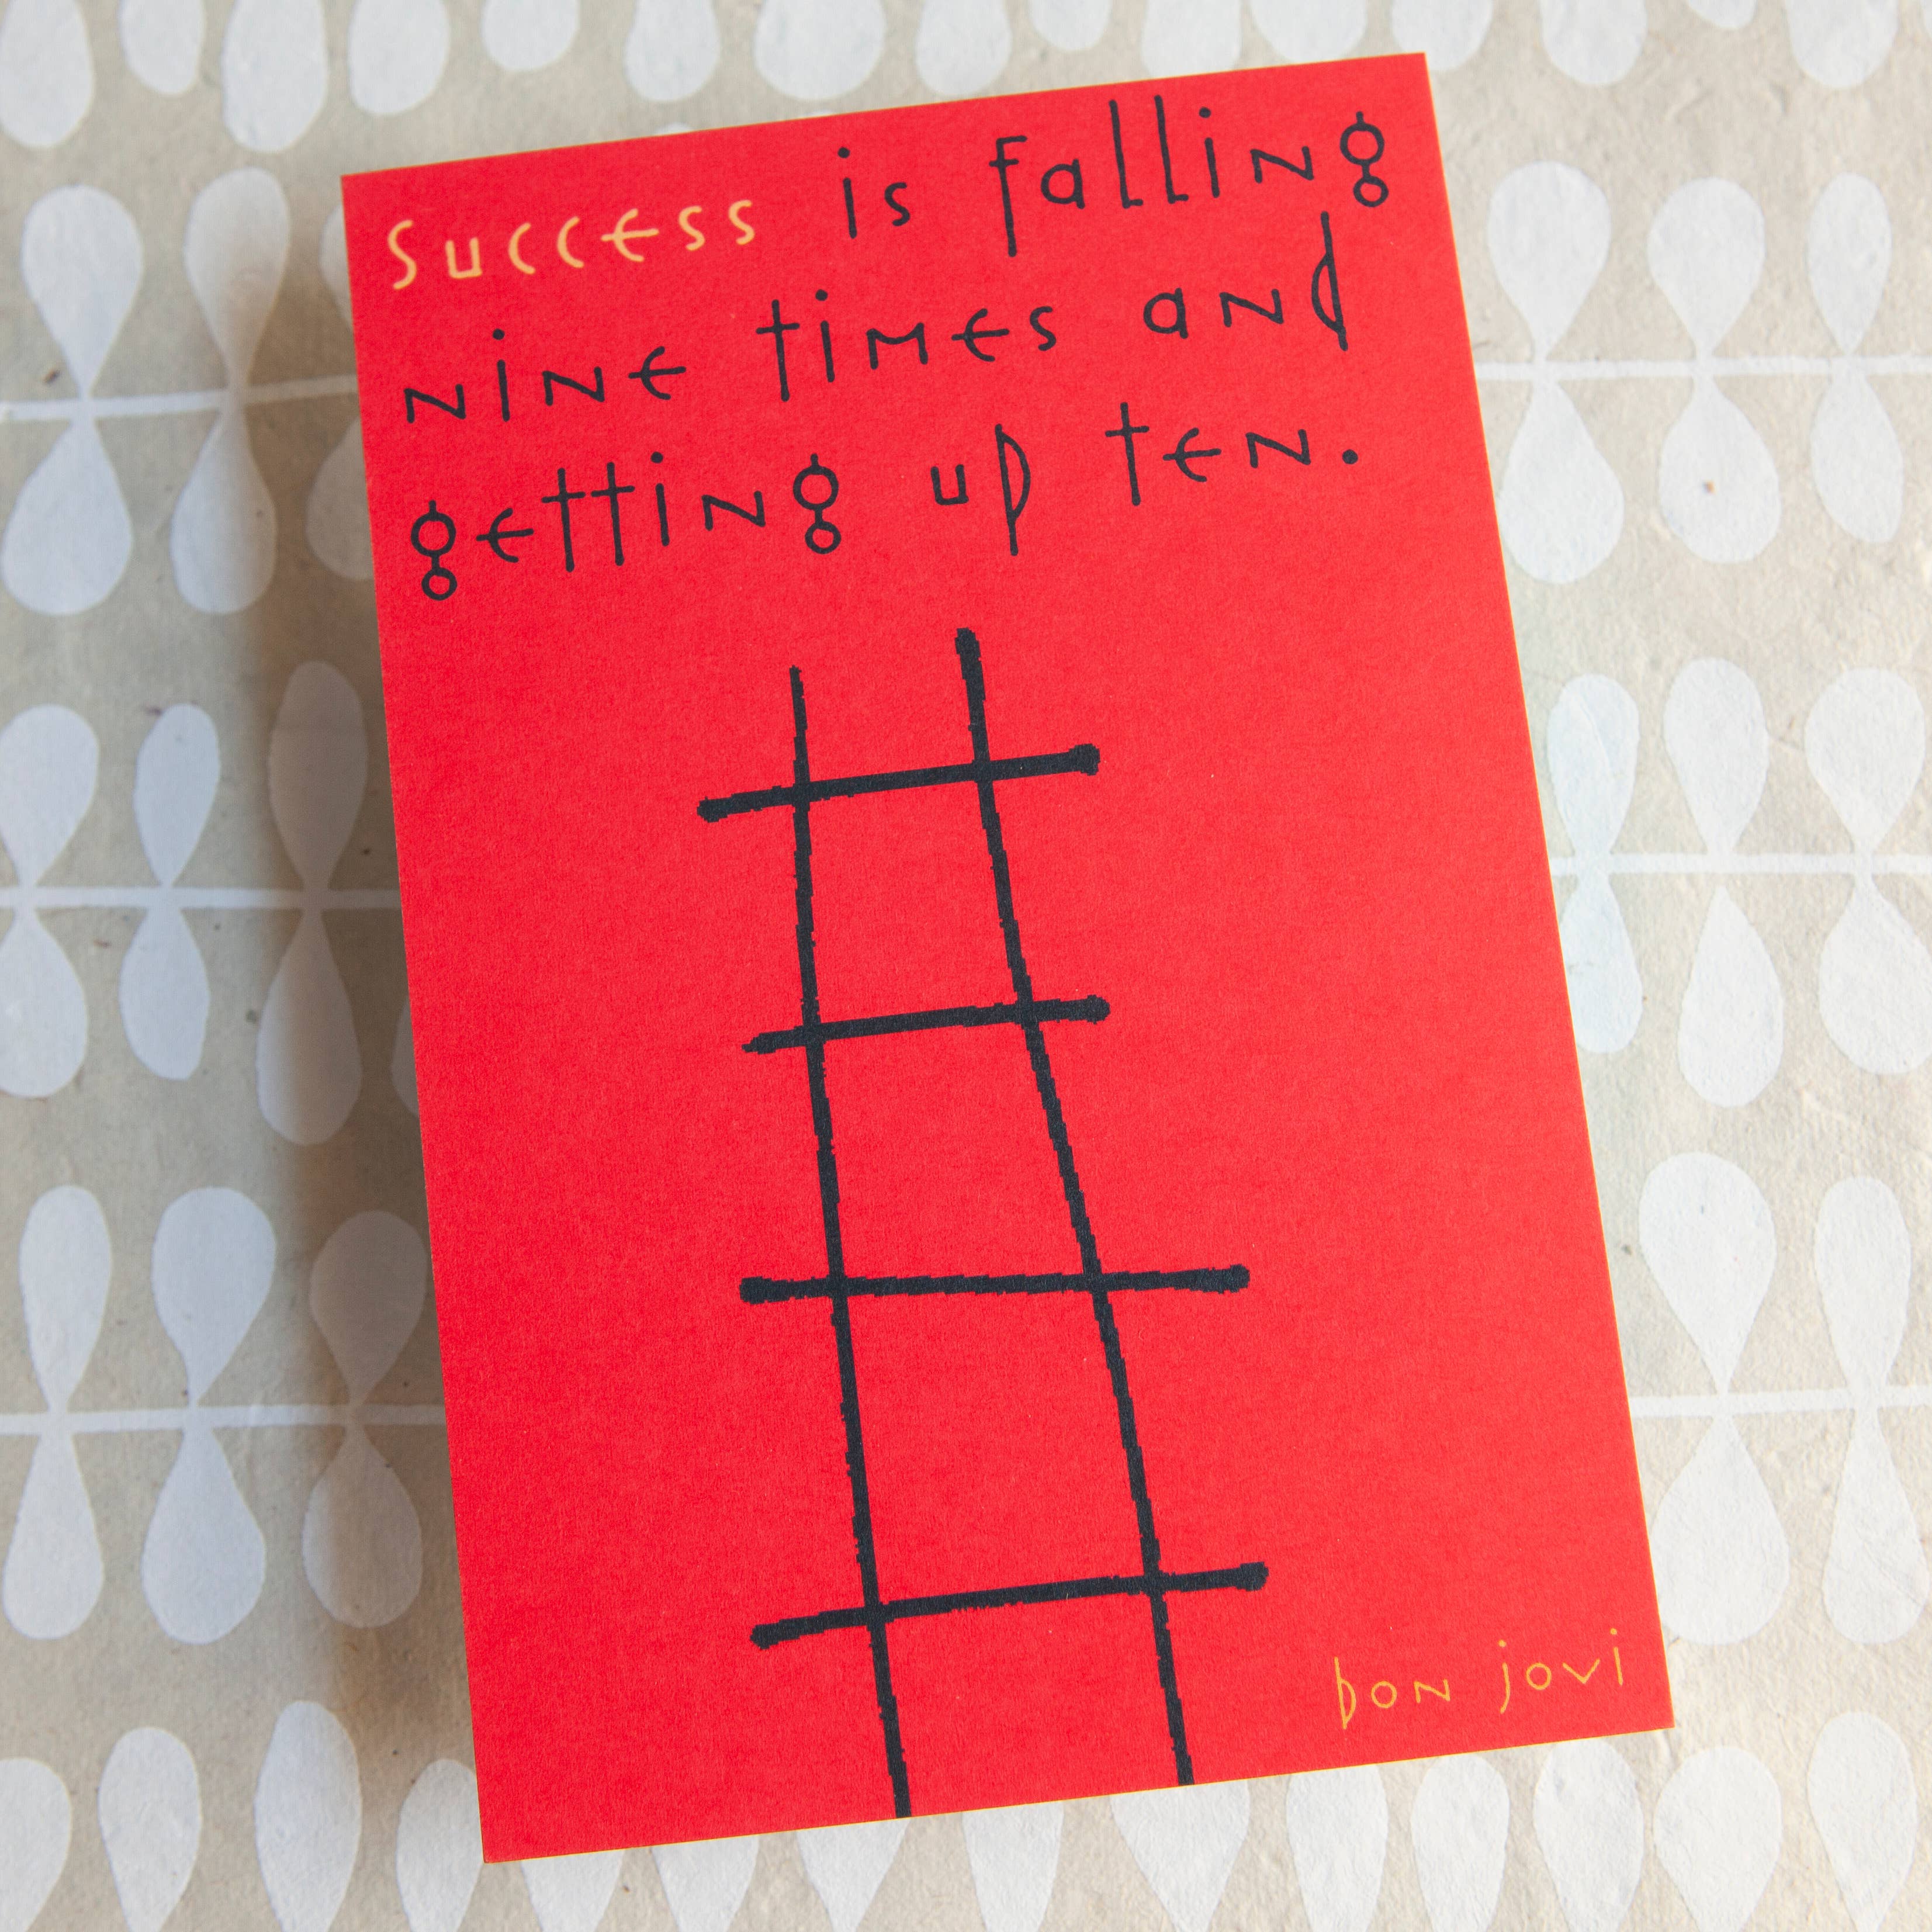 Success is falling
nine times and
getting up ten.
bon jovi